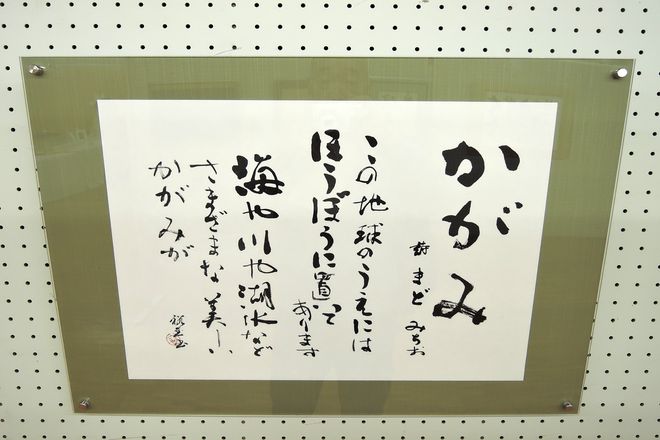 かがみ
詩 まど みちお
この地球のうえには
ほうぼうに置いて
あります
海や川や湖水など
さまざまな美しい
かがみが